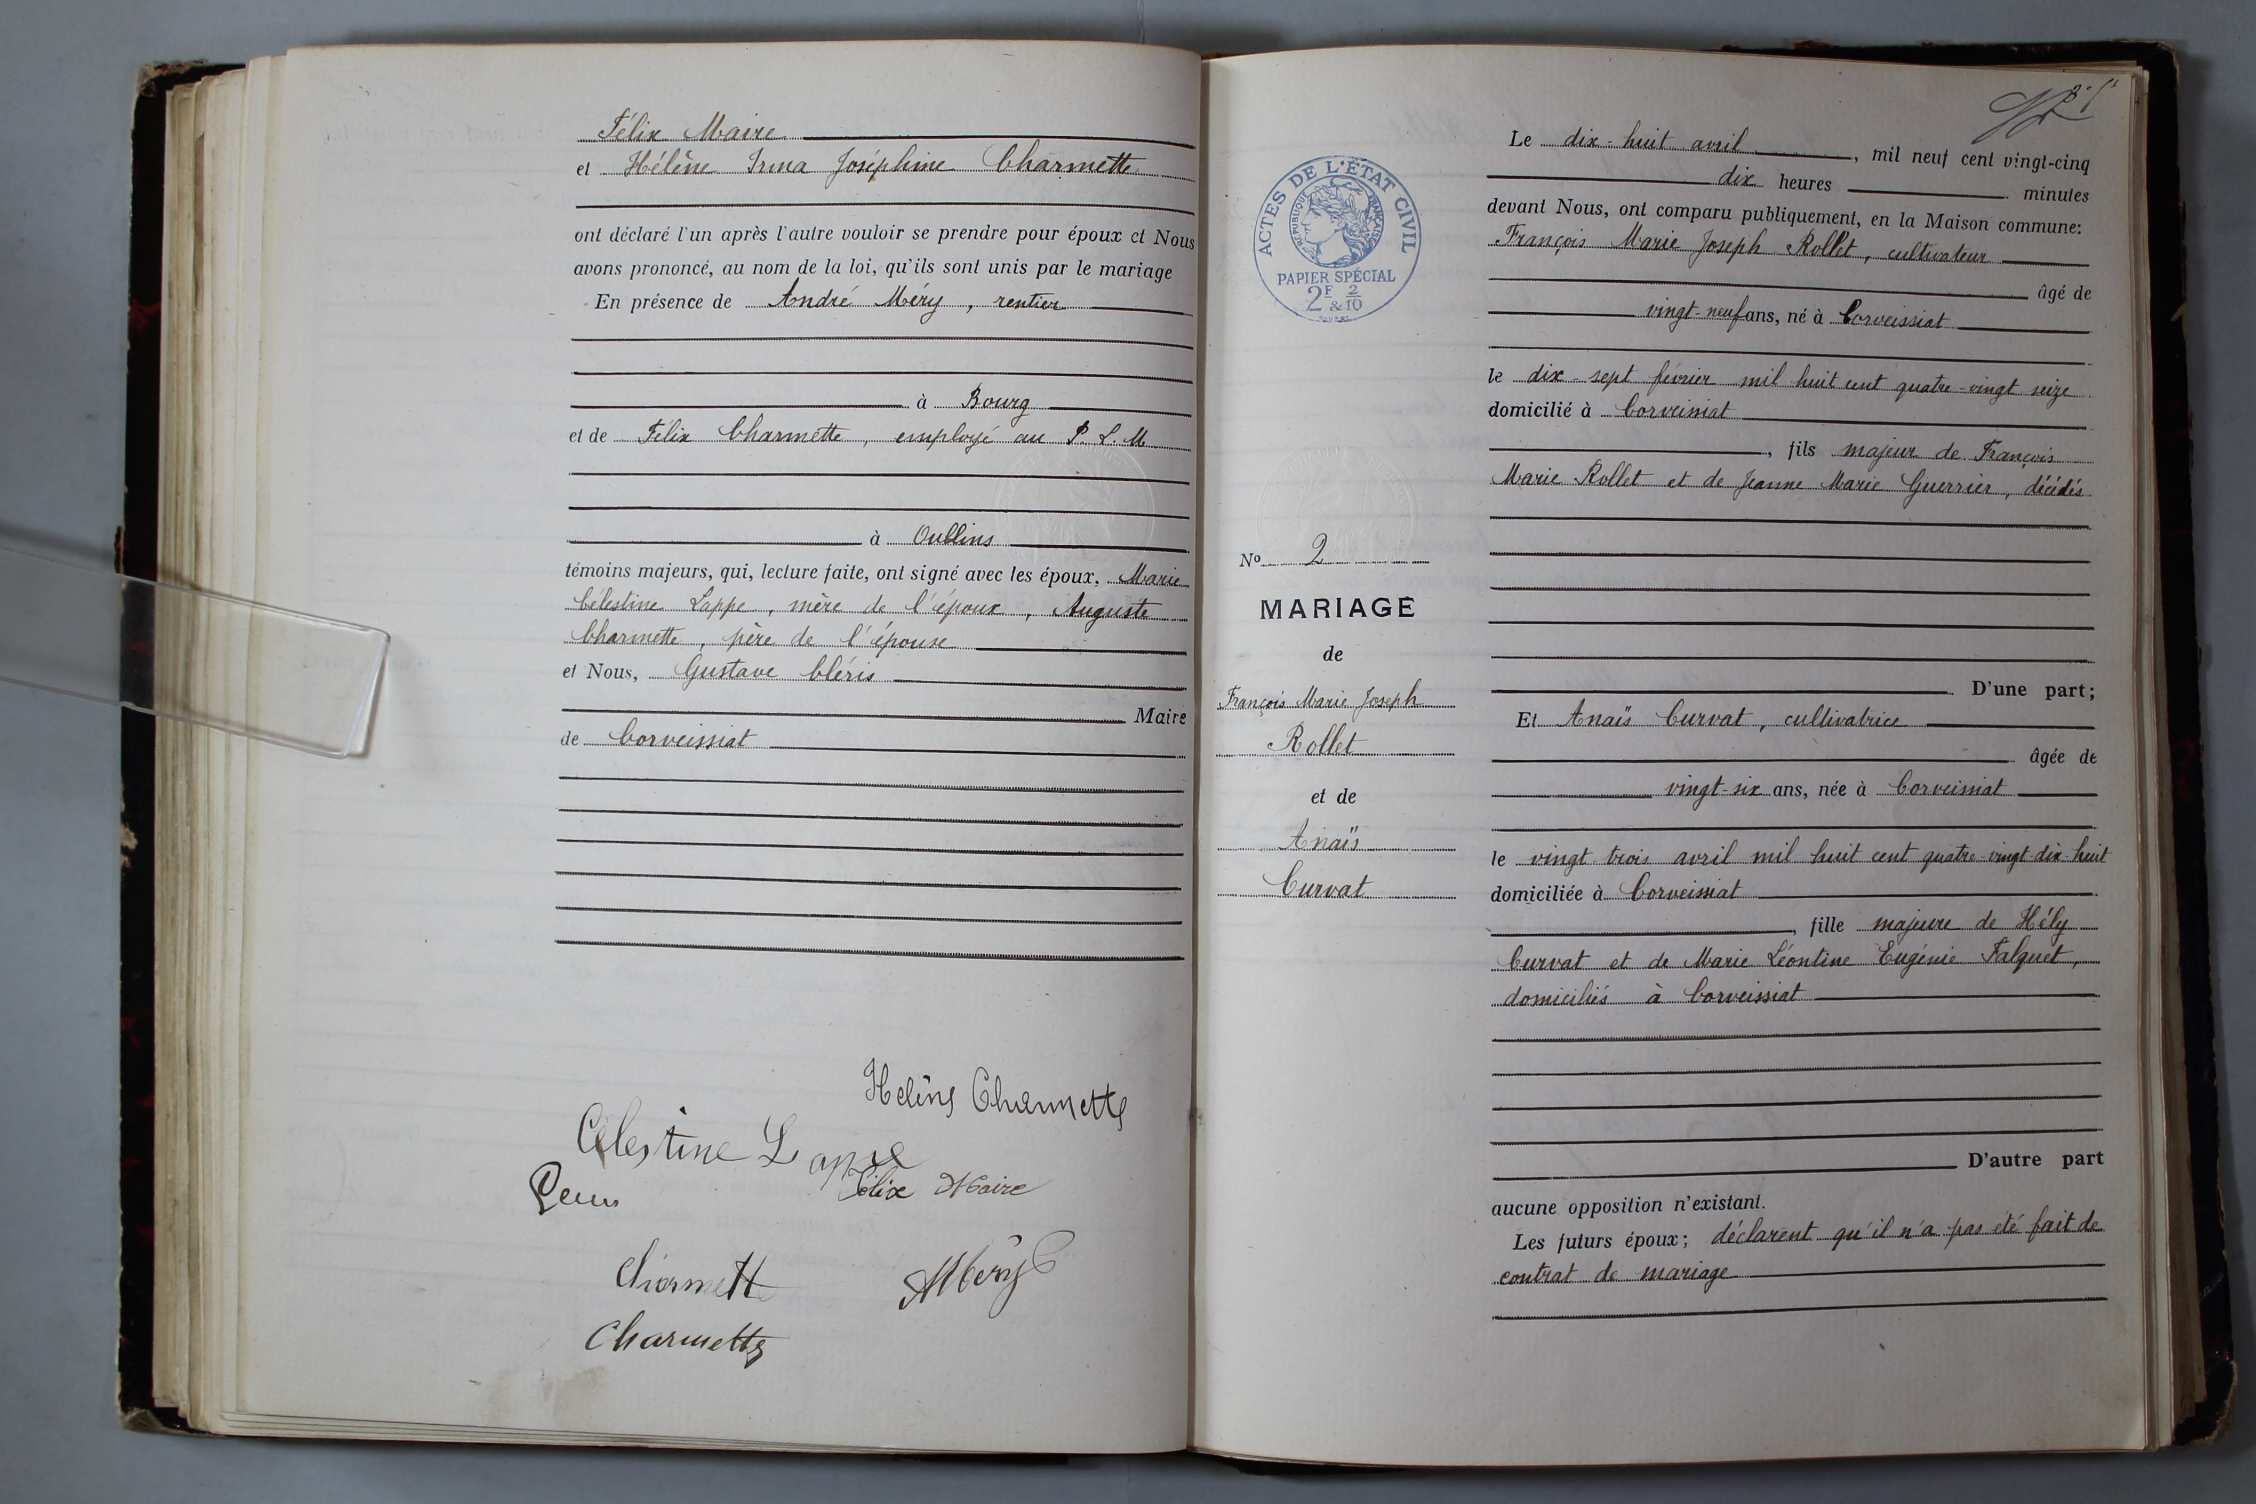 Félix Maire
et Hélène Irma Joséphine Charmette
ont déclaré l'un après l'autre vouloir se prendre pour époux et Nous
avons prononcé, au nom de la loi, qu'ils sont unis par le mariage
En présence de André Méry, rentier
à Bourg
et de Felix Charmette, employé au P. L. M
à Oullins
témoins majeurs, qui, lecture faite, ont signé avec les époux, Marie
Célestine Lappe, mère de l'époux, Auguste
Charmette, père de l'épouse
et Nous, Gustave Cléris
Maire
de Corveissiat
Helène Charmette
Célestine Lappe
Félix Maire
Charmette
AMéry
Charmette
ACTES DE L'ÉTAT CIVIL
RÉPUBLIQUE FRANÇAISE
PAPIER SPÉCIAL
2F & 2/10
No 2
MARIAGE
de
François Marie Joseph
Rollet
et de
Anaïs
Curvat
Le dix-huit avril, mil neuf cent vingt-cinq
dix heures minutes
devant Nous, ont comparu publiquement, en la Maison commune:
François Marie Joseph Rollet, cultivateur
âgé de
vingt-neuf ans, né à Corveissiat
le dix-sept février mil huit cent quatre-vingt seize
domicilié à Corveissiat
, fils majeur de François
Marie Rollet et de Jeanne Marie Guerrier, décédés
D'une part;
Et Anaïs Curvat, cultivatrice
âgée de
vingt-six ans, née à Corveissiat
le vingt trois avril mil huit cent quatre-vingt-dix-huit
domiciliée à Corveissiat
, fille majeure de Hély
Curvat et de Marie Léontine Eugénie Falquet,
domiciliés à Corveissiat
D'autre part
aucune opposition n'existant.
Les futurs époux; déclarent qu'il n'a pas été fait de
contrat de mariage